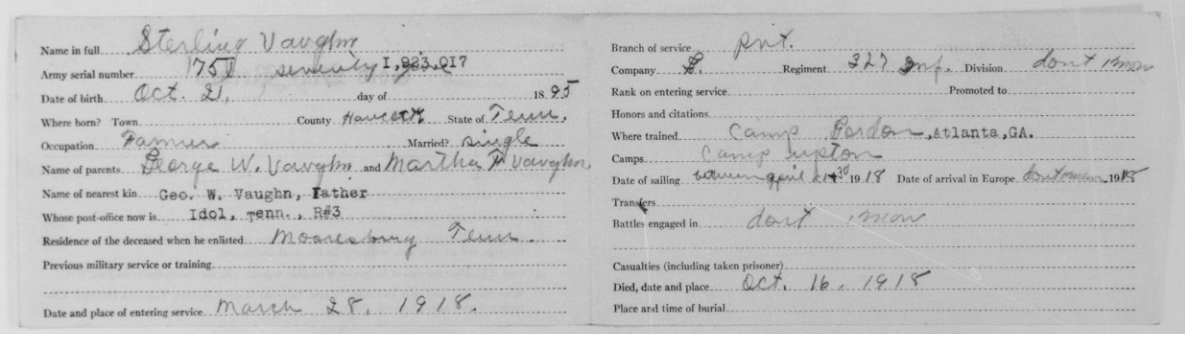 Name in full Sterling Vaughn
Army serial number 1,823,017
Date of birth Oct. 21, day of 1895
Where born? Town County Hancock State of Tenn.
Occupation Farmer Married? single
Name of parents George W. Vaughn and Martha F Vaughn
Name of nearest kin Geo. W. Vaughn, Father
Whose post-office now is Idol, Tenn., R#3
Residence of the deceased when he enlisted Mooresburg Tenn.
Previous military service or training
Date and place of entering service March 28, 1918.
Branch of service Pvt.
Company Regiment 327 Inf. Division dont know
Rank on entering service Promoted to
Honors and citations
Where trained Camp Gordon, Atlanta, GA.
Camps Camp Upton
Date of sailing between april 1918 Date of arrival in Europe 1918
Transfers
Battles engaged in dont know
Casualties (including taken prisoner)
Died, date and place Oct. 16, 1918
Place and time of burial